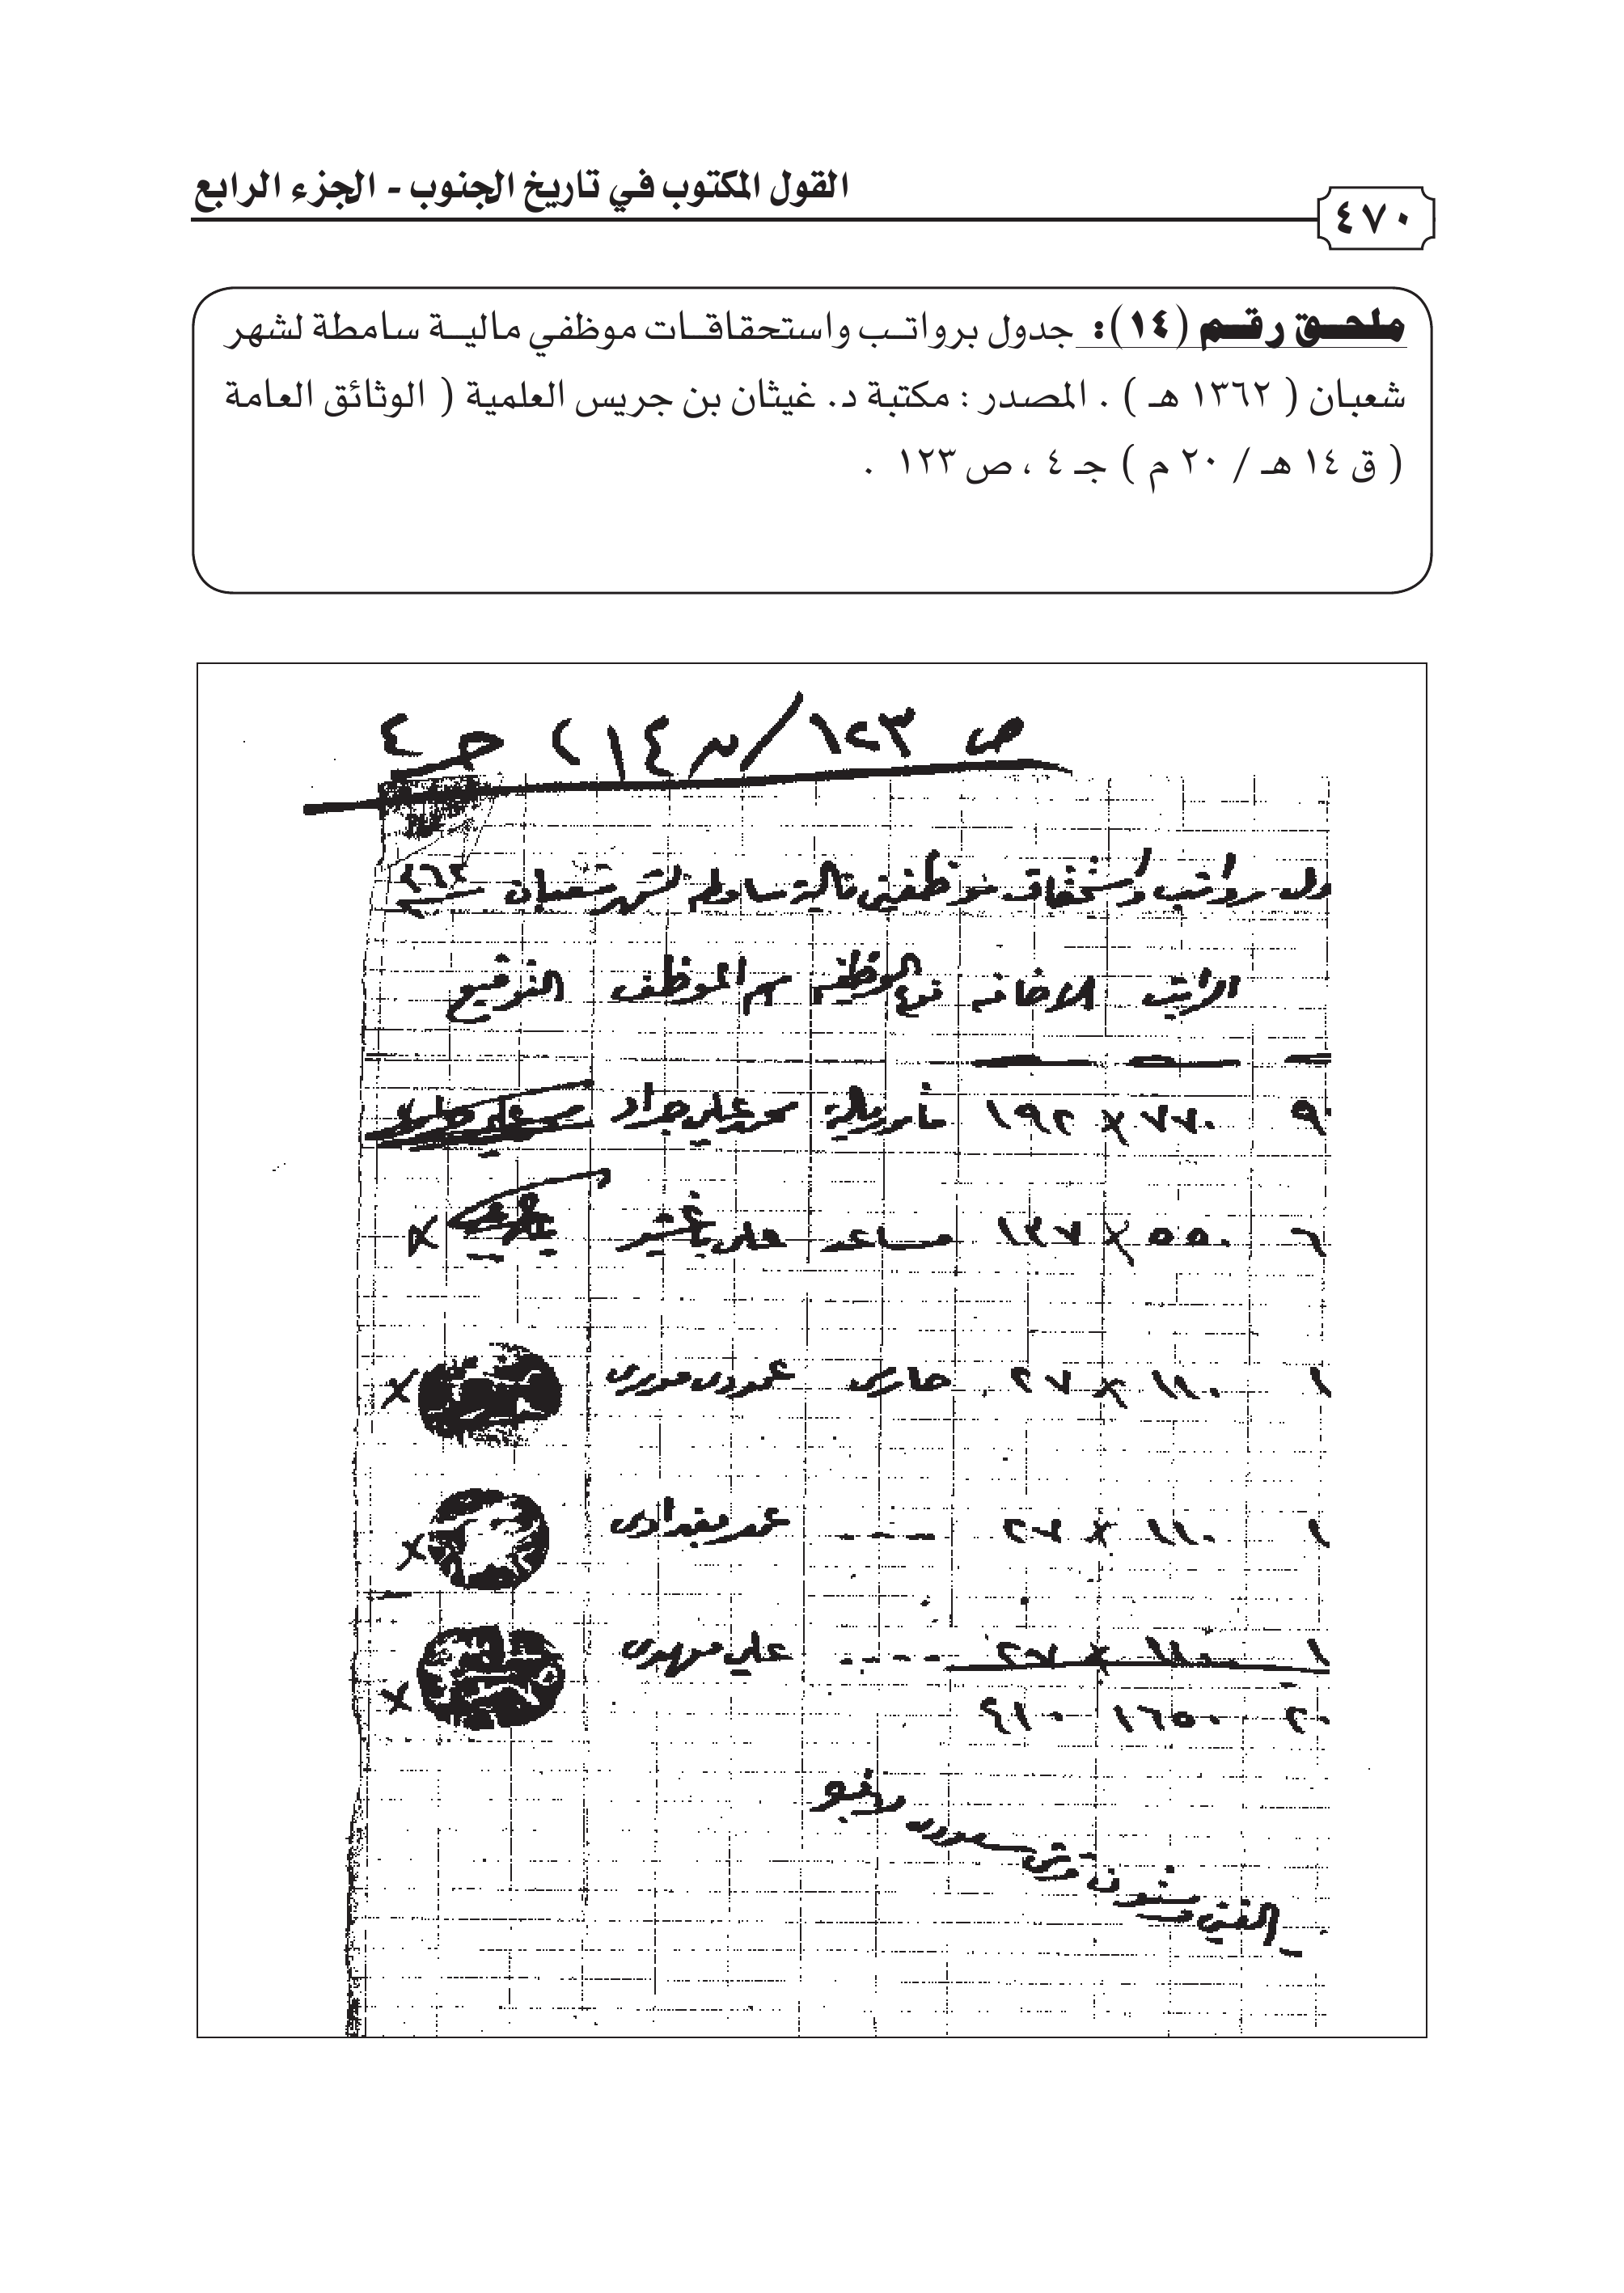 القول المكتوب في تاريخ الجنوب - الجزء الرابع
٤٧٠
ملحق رقم (١٤): جدول برواتب واستحقاقات موظفي مالية سامطة لشهر
شعبان ( ١٣٦٢ هـ ) . المصدر : مكتبة د. غيثان بن جريس العلمية ( الوثائق العامة
( ق ١٤ هـ / ٢٠ م ) جـ ٤ ، ص ١٢٣ .
ص ١٢٣ / ق ١٤ ) جـ ٤
ول رواتب واستحقاق موظفين مالية سامطه لشهر شعبان
الراتب الاضافه نوع الوظيفه اسم الموظف التوقيع
٧٧٠ × ١٩٢ مأمور مالية محمد علي جراد
٦ ٥٥٠ × ١٣٧ مساعد علي باعشير
١ ١١٠ × ٢٧ حارس
١ ١١٠ × ٢٧ بغدادى
١ ١١٠ × ٢٧ علي مهدى
١٦٥٠ ٤١٠